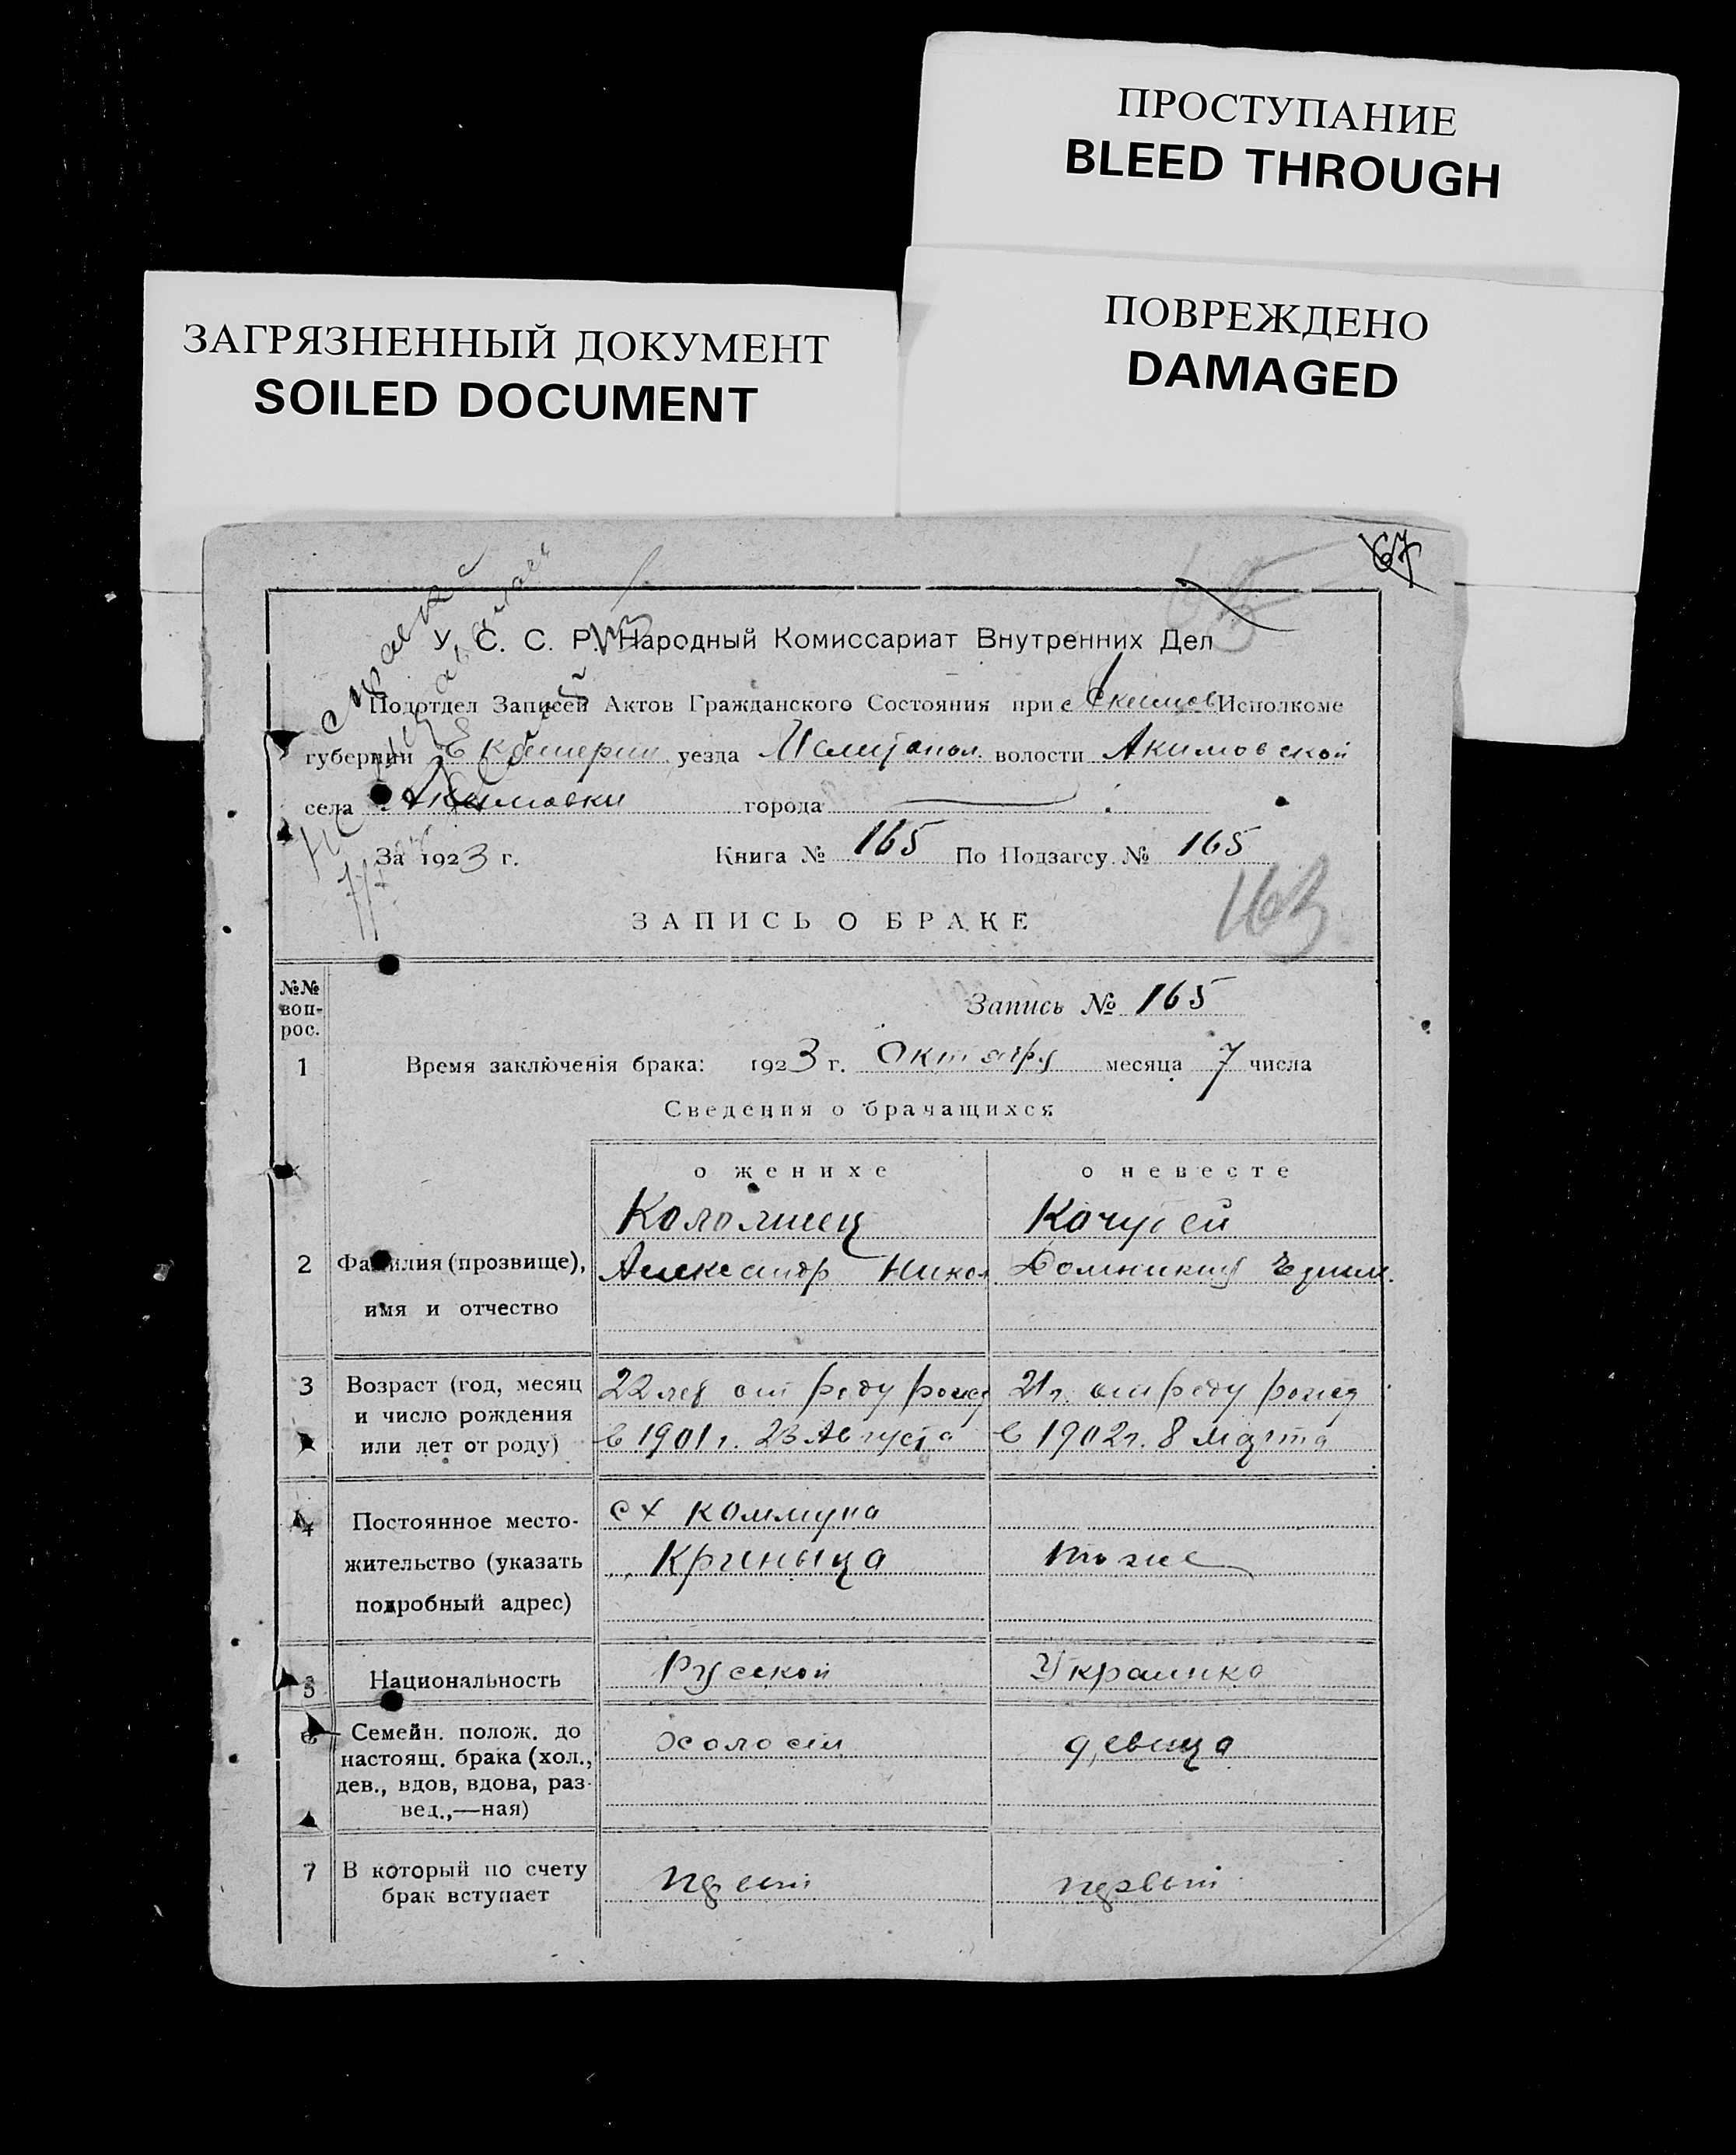 ПРОСТУПАНИЕ
BLEED THROUGH
ПОВРЕЖДЕНО
DAMAGED
ЗАГРЯЗНЕННЫЙ ДОКУМЕНТ
SOILED DOCUMENT
67
У. С. С. Р. Народный Комиссариат Внутренних Дел
Подотдел Записей Актов Гражданского Состояния при с Акимов Исполкоме
губернии Екатерин уезда Мелитопол. волости Акимовской
села Акимовки города
За 1923 г. Книга № 165 По Подзагсу № 165
163
ЗАПИСЬ О БРАКЕ
№№ воп-рос.
Запись № 165
1 Время заключенія брака: 1923 г. Октября месяца 7 числа
Сведения о брачащихся
о женихе о невесте
Коломиец Кочубей
2 Фамилия (прозвище), Александр Никол Домникия Ефим.
имя и отчество
3 Возраст (год, месяц 22 лет от роду рожд 21 г. от роду рожд
и число рождения
или лет от роду) в 1901 г. 23 Августа в 1902 г. 8 Марта
сх коммуна
4 Постоянное место-
жительство (указать Криныца тоже
подробный адрес)
5 Национальность Русской Украинка
6 Семейн. полож. до холост девица
настоящ. брака (хол.,
дев., вдов, вдова, раз-
вед.,—ная)
7 В который по счету первый первый
брак вступает